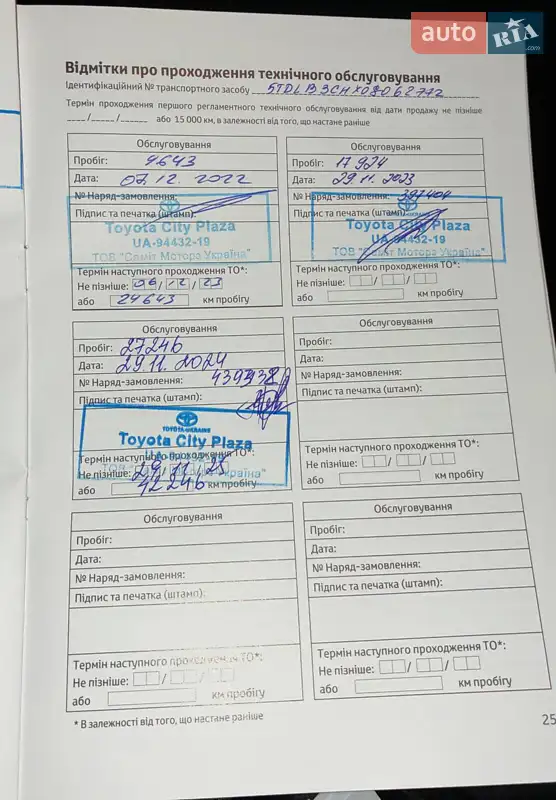 auto RIA.com
Відмітки про проходження технічного обслуговування
Ідентифікаційний № транспортного засобу 5TDLB3CHX0S062772
Термін проходження першого регламентного технічного обслуговування від дати продажу не пізніше
____/____/____ або 15 000 км, в залежності від того, що настане раніше
Обслуговування
Пробіг: 9643
Дата: 07.12.2022
№ Наряд-замовлення:
Підпис та печатка (штамп):
Toyota City Plaza
UA-94432-19
ТОВ "Саміт Моторз Україна"
Термін наступного проходження ТО*:
Не пізніше: 06/12/23
або 24643 км пробігу
Обслуговування
Пробіг: 17924
Дата: 29.11.2023
№ Наряд-замовлення: 397404
Підпис та печатка (штамп):
Toyota City Plaza
UA-94432-19
ТОВ "Саміт Моторз Україна"
Термін наступного проходження ТО*:
Не пізніше:
або км пробігу
Обслуговування
Пробіг: 27246
Дата: 29.11.2024
№ Наряд-замовлення: 439938
Підпис та печатка (штамп):
TOYOTA UKRAINE
Toyota City Plaza
Термін наступного проходження ТО*:
Не пізніше: 29/11/25
або 42246 км пробігу
Обслуговування
Пробіг:
Дата:
№ Наряд-замовлення:
Підпис та печатка (штамп):
Термін наступного проходження ТО*:
Не пізніше:
або км пробігу
Обслуговування
Пробіг:
Дата:
№ Наряд-замовлення:
Підпис та печатка (штамп):
Термін наступного проходження ТО*:
Не пізніше:
або км пробігу
Обслуговування
Пробіг:
Дата:
№ Наряд-замовлення:
Підпис та печатка (штамп):
Термін наступного проходження ТО*:
Не пізніше:
або км пробігу
* В залежності від того, що настане раніше
25